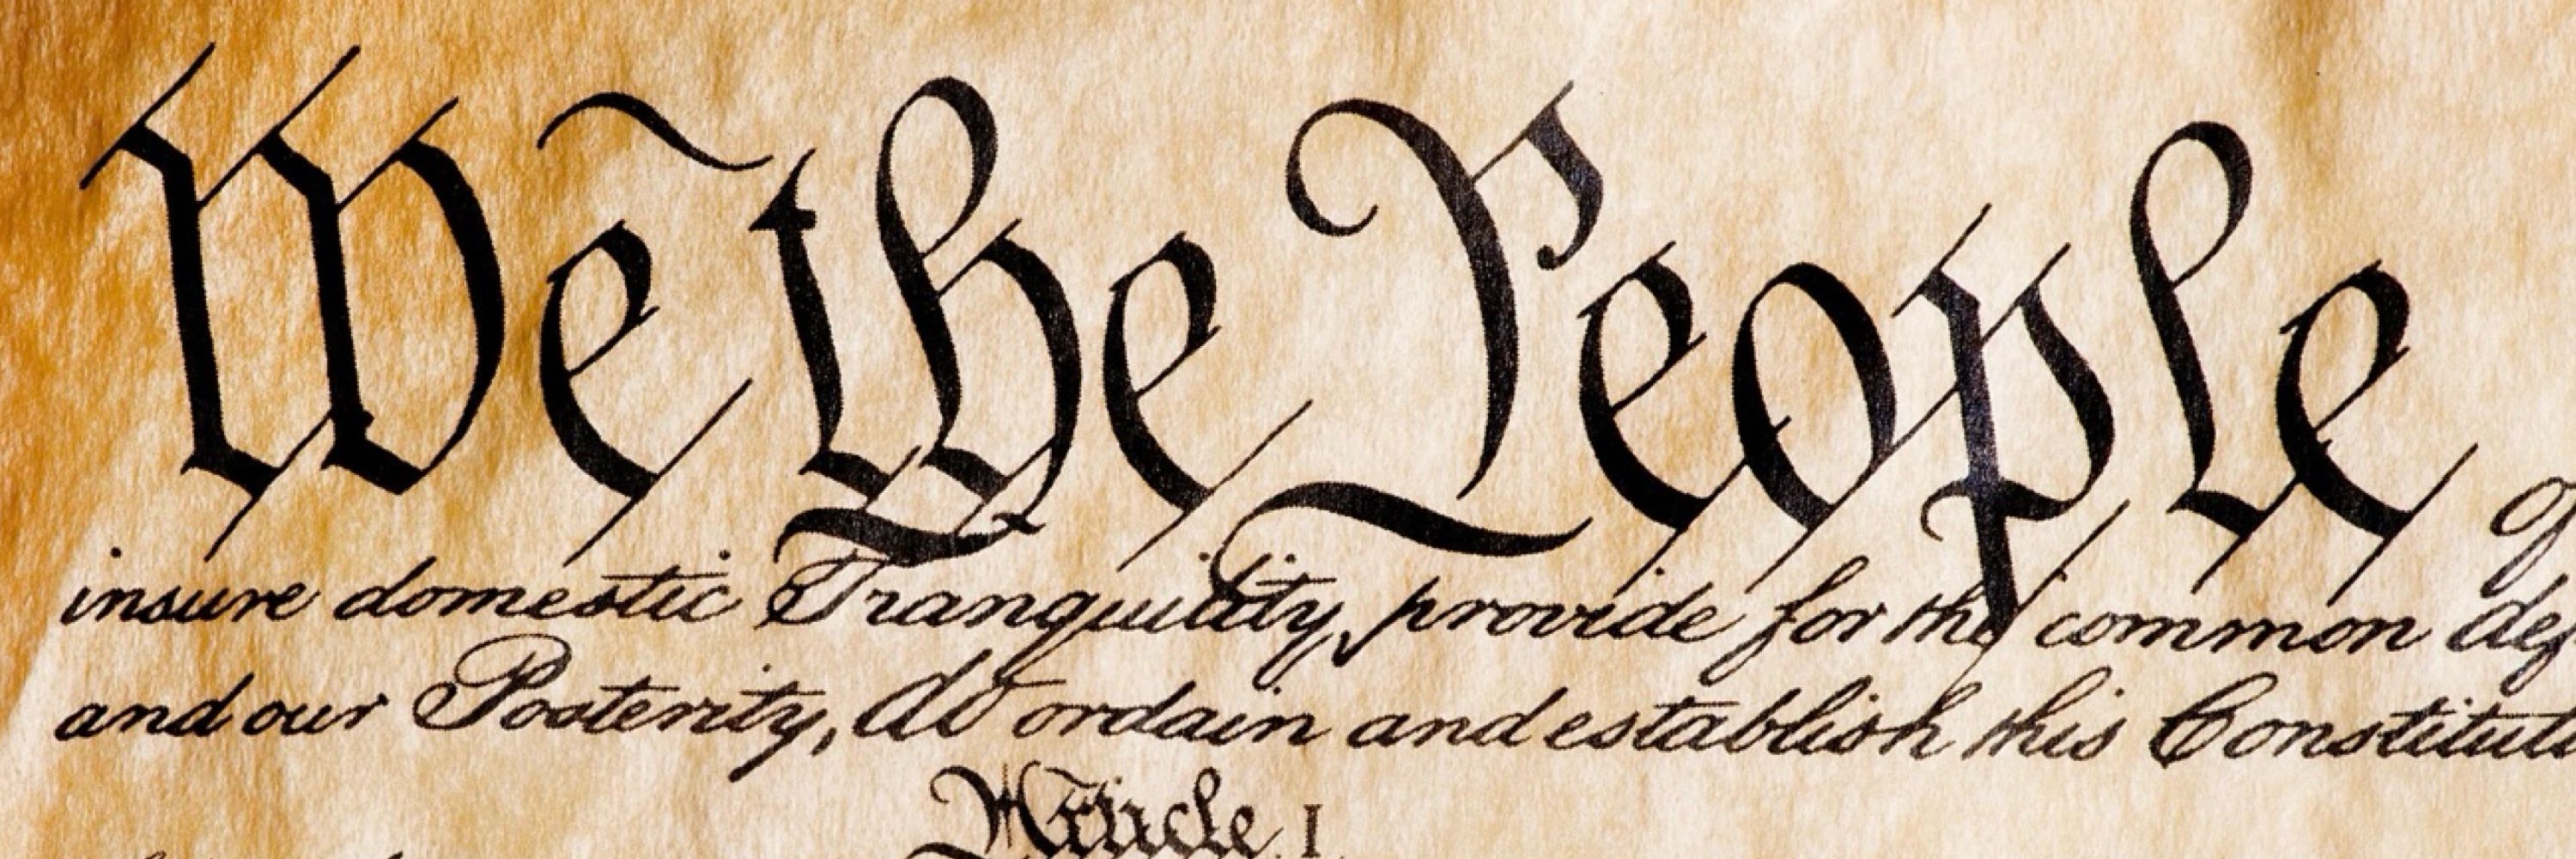 We the People
insure domestic Tranquility, provide for the common
and our Posterity, do ordain and establish this
Article. I